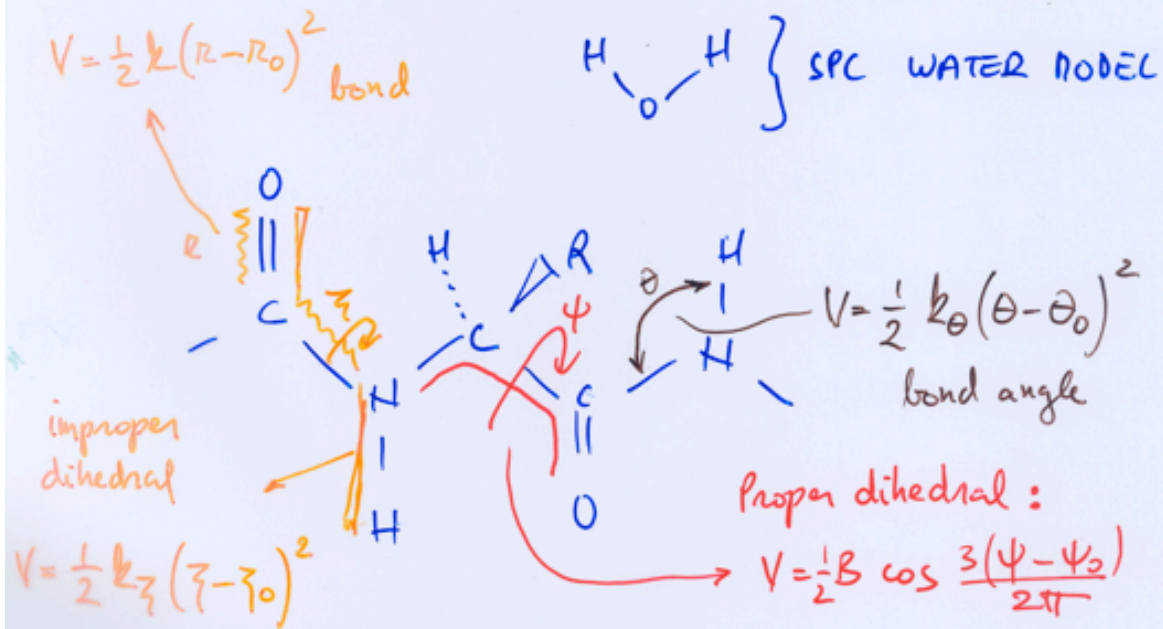 V = ½ k (r - r₀)²
bond
H H
O
} SPC WATER MODEL
O
r
C
ξ
H
R
C
ψ
θ
H
N
V = ½ k_θ (θ - θ₀)²
bond angle
N
H
C
O
improper
dihedral
V = ½ k_ξ (ξ - ξ₀)²
Proper dihedral :
V = ½ B cos 3(ψ - ψ₀) / 2π